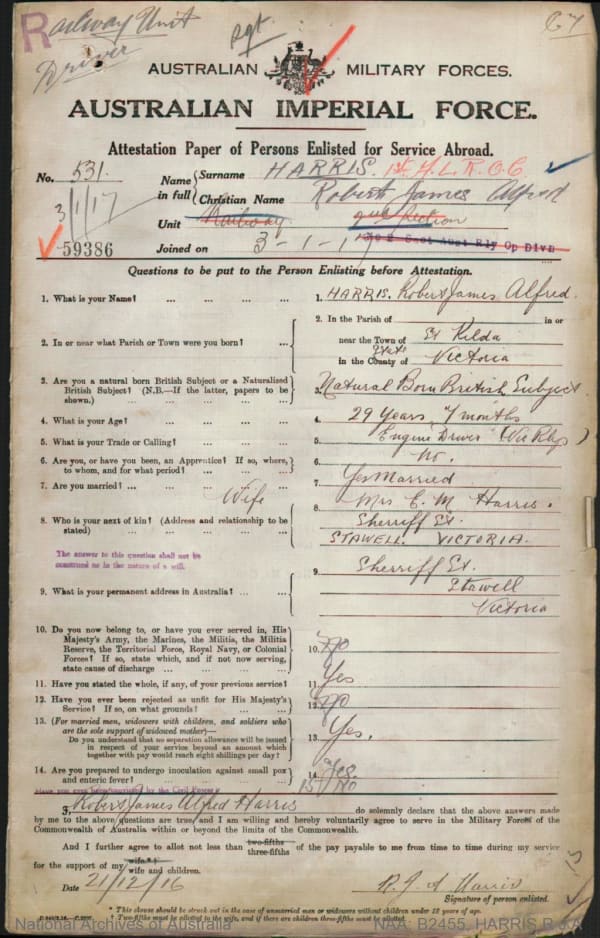 Railway Unit
Driver
Sgt.
67
AUSTRALIAN MILITARY FORCES.
AUSTRALIAN IMPERIAL FORCE.
Attestation Paper of Persons Enlisted for Service Abroad.
No. 531.
3/1/17
59386
Name in full { Surname HARRIS. 1st A.L.R.O.C.
Christian Name Robert James Alfred
Unit Railway Section
Joined on 3-1-17
Questions to be put to the Person Enlisting before Attestation.
1. What is your Name? ... ... ... ... 1. HARRIS. Robert James Alfred.
2. In or near what Parish or Town were you born? ... 2. In the Parish of in or
near the Town of St Kilda
in the County of State Victoria
3. Are you a natural born British Subject or a Naturalized
British Subject? (N.B.—If the latter, papers to be
shown.) ... ... ... ... 3. Natural Born British Subject
4. What is your Age? ... ... ... ... 4. 29 Years 7 months
5. What is your Trade or Calling? ... ... ... 5. Engine Driver (Vic Rlys)
6. Are you, or have you been, an Apprentice? If so, where,
to whom, and for what period? ... ... ... 6. No.
7. Are you married? ... ... ... ... 7. Yes Married
Wife
8. Who is your next of kin? (Address and relationship to be
stated) ... ... ... ... 8. Mrs E. M Harris.
Sherriff St.
STAWELL VICTORIA.
The answer to this question shall not be
construed as in the nature of a will.
9. What is your permanent address in Australia? ... ... 9. Sherriff St.
Stawell
Victoria
10. Do you now belong to, or have you ever served in, His
Majesty's Army, the Marines, the Militia, the Militia
Reserve, the Territorial Force, Royal Navy, or Colonial
Forces? If so, state which, and if not now serving,
state cause of discharge ... ... ... 10. No
11. Have you stated the whole, if any, of your previous service? 11. Yes
12. Have you ever been rejected as unfit for His Majesty's
Service? If so, on what grounds? ... ... 12. No
13. (For married men, widowers with children, and soldiers who
are the sole support of widowed mother)—
Do you understand that no separation allowance will be issued
in respect of your service beyond an amount which
together with pay would reach eight shillings per day? 13. Yes.
14. Are you prepared to undergo inoculation against small pox
and enteric fever? ... ... ... 14. Yes.
15 No
I, Robert James Alfred Harris do solemnly declare that the above answers made
by me to the above questions are true, and I am willing and hereby voluntarily agree to serve in the Military Forces of the
Commonwealth of Australia within or beyond the limits of the Commonwealth.
And I further agree to allot not less than two-fifths three-fifths of the pay payable to me from time to time during my service
for the support of my wife.* wife and children.
Date 21/12/16
R. J. A Harris
Signature of person enlisted.
* This clause should be struck out in the case of unmarried men or widowers without children under 18 years of age.
† Two-fifths must be allotted to the wife, and if there are children three-fifths must be allotted.
National Archives of Australia
NAA: B2455, HARRIS R J A